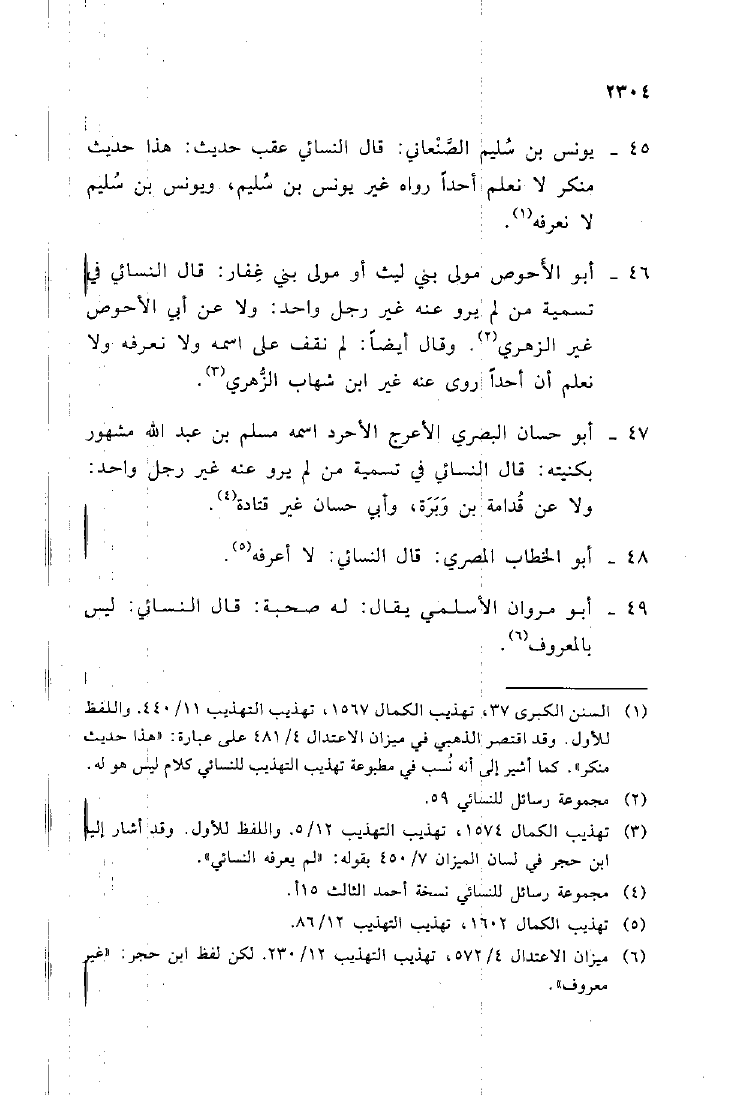 ٢٣٠٤
٤٥ ـ يونس بن سُليم الصَّنْعاني: قال النسائي عقب حديث: هذا حديث
منكر لا نعلم أحداً رواه غير يونس بن سُليم، ويونس بن سُليم
لا نعرفه(١).
٤٦ ـ أبو الأَحوص مولى بني ليث أو مولى بني غِفار: قال النسائي في
تسمية من لم يرو عنه غير رجل واحد: ولا عن أبي الأحوص
غير الزهري(٢). وقال أيضاً: لم نقف على اسمه ولا نعرفه ولا
نعلم أن أحداً روى عنه غير ابن شهاب الزُّهري(٣).
٤٧ ـ أبو حسان البصري الأعرج الأحرد اسمه مسلم بن عبد الله مشهور
بكنيته: قال النسائي في تسمية من لم يرو عنه غير رجل واحد:
ولا عن قُدامة بن وَبَرَة، وأبي حسان غير قتادة(٤).
٤٨ ـ أبو الخطاب المصري: قال النسائي: لا أعرفه(٥).
٤٩ ـ أبو مروان الأسلمي يقال: له صحبة: قال النسائي: ليس
بالمعروف(٦).
(١) السنن الكبرى ٣٧، تهذيب الكمال ١٥٦٧، تهذيب التهذيب ٤٤٠/١١. واللفظ
للأول. وقد اقتصر الذهبي في ميزان الاعتدال ٤٨١/٤ على عبارة: «هذا حديث
منكر». كما أشير إلى أنه نُسب في مطبوعة تهذيب التهذيب للنسائي كلام ليس هو له.
(٢) مجموعة رسائل للنسائي ٥٩.
(٣) تهذيب الكمال ١٥٧٤، تهذيب التهذيب ٥/١٢. واللفظ للأول. وقد أشار إليه
ابن حجر في لسان الميزان ٤٥٠/٧ بقوله: «لم يعرفه النسائي».
(٤) مجموعة رسائل للنسائي نسخة أحمد الثالث ١٥أ.
(٥) تهذيب الكمال ١٦٠٢، تهذيب التهذيب ٨٦/١٢.
(٦) ميزان الاعتدال ٥٧٢/٤، تهذيب التهذيب ٢٣٠/١٢. لكن لفظ ابن حجر: «غير
معروف».